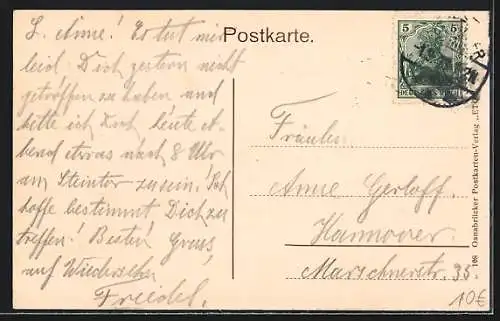 Postkarte.
L. Anne! Es tut mir
leid Dich gestern nicht
getroffen zu haben und
bitte ich Dich heute
Abend etwas nach 8 Uhr
am Steintor zu sein! Ich
hoffe bestimmt Dich zu
treffen! Besten Gruss,
auf Wiedersehen
Friedel.
5 5
DEUTSCHES REICH
Fräulein
Anne Gerloff
Hannover.
Marschnerstr. 35
109 Osnabrücker Postkarten-Verlag
10€